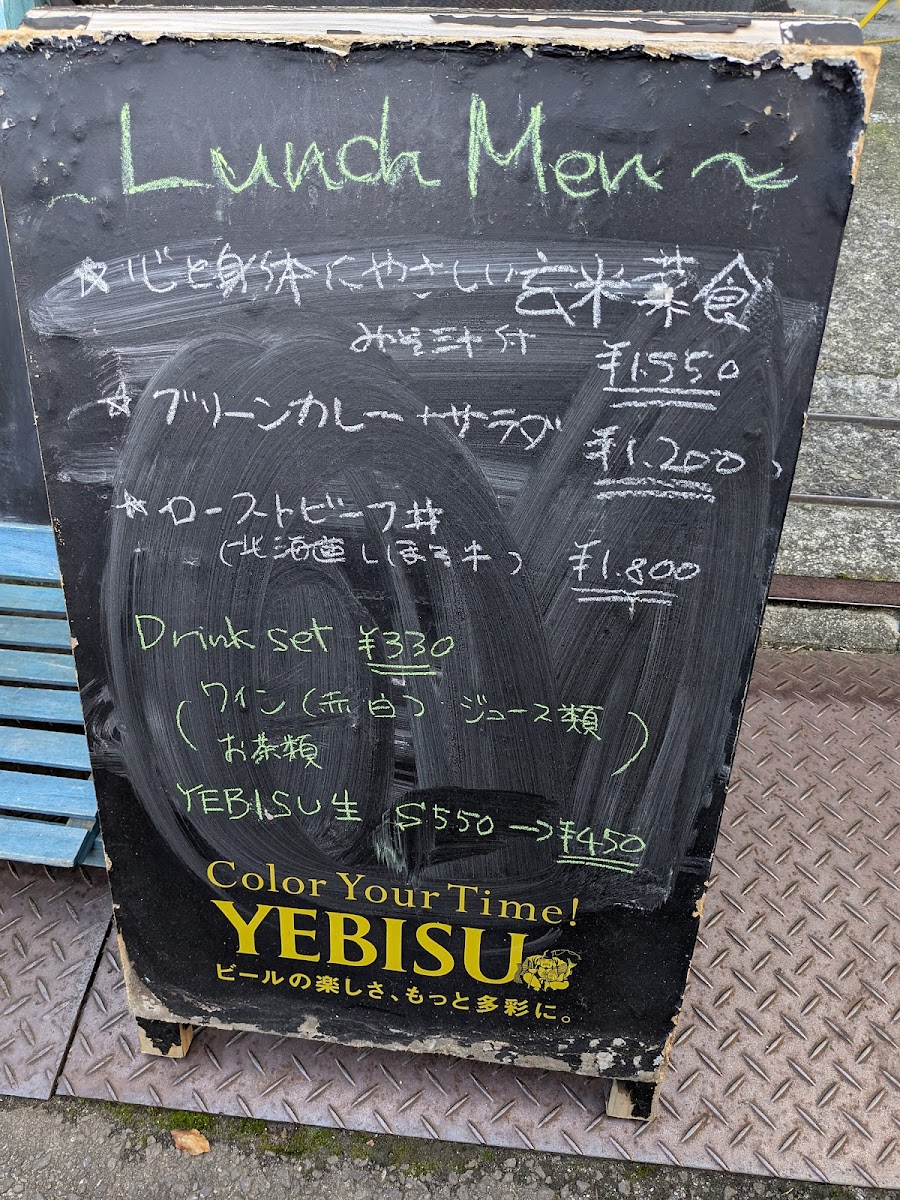 ~Lunch Men~
☆心と身体にやさしい玄米菜食
みそ汁付 ¥1.550
☆グリーンカレー+サラダ ¥1.200
☆ローストビーフ丼
(北海道しほろ牛) ¥1.800
Drink set ¥330
(ワイン(赤白) ジュース類
お茶類)
YEBISU生 S550→¥450
Color Your Time!
YEBISU
ビールの楽しさ、もっと多彩に。